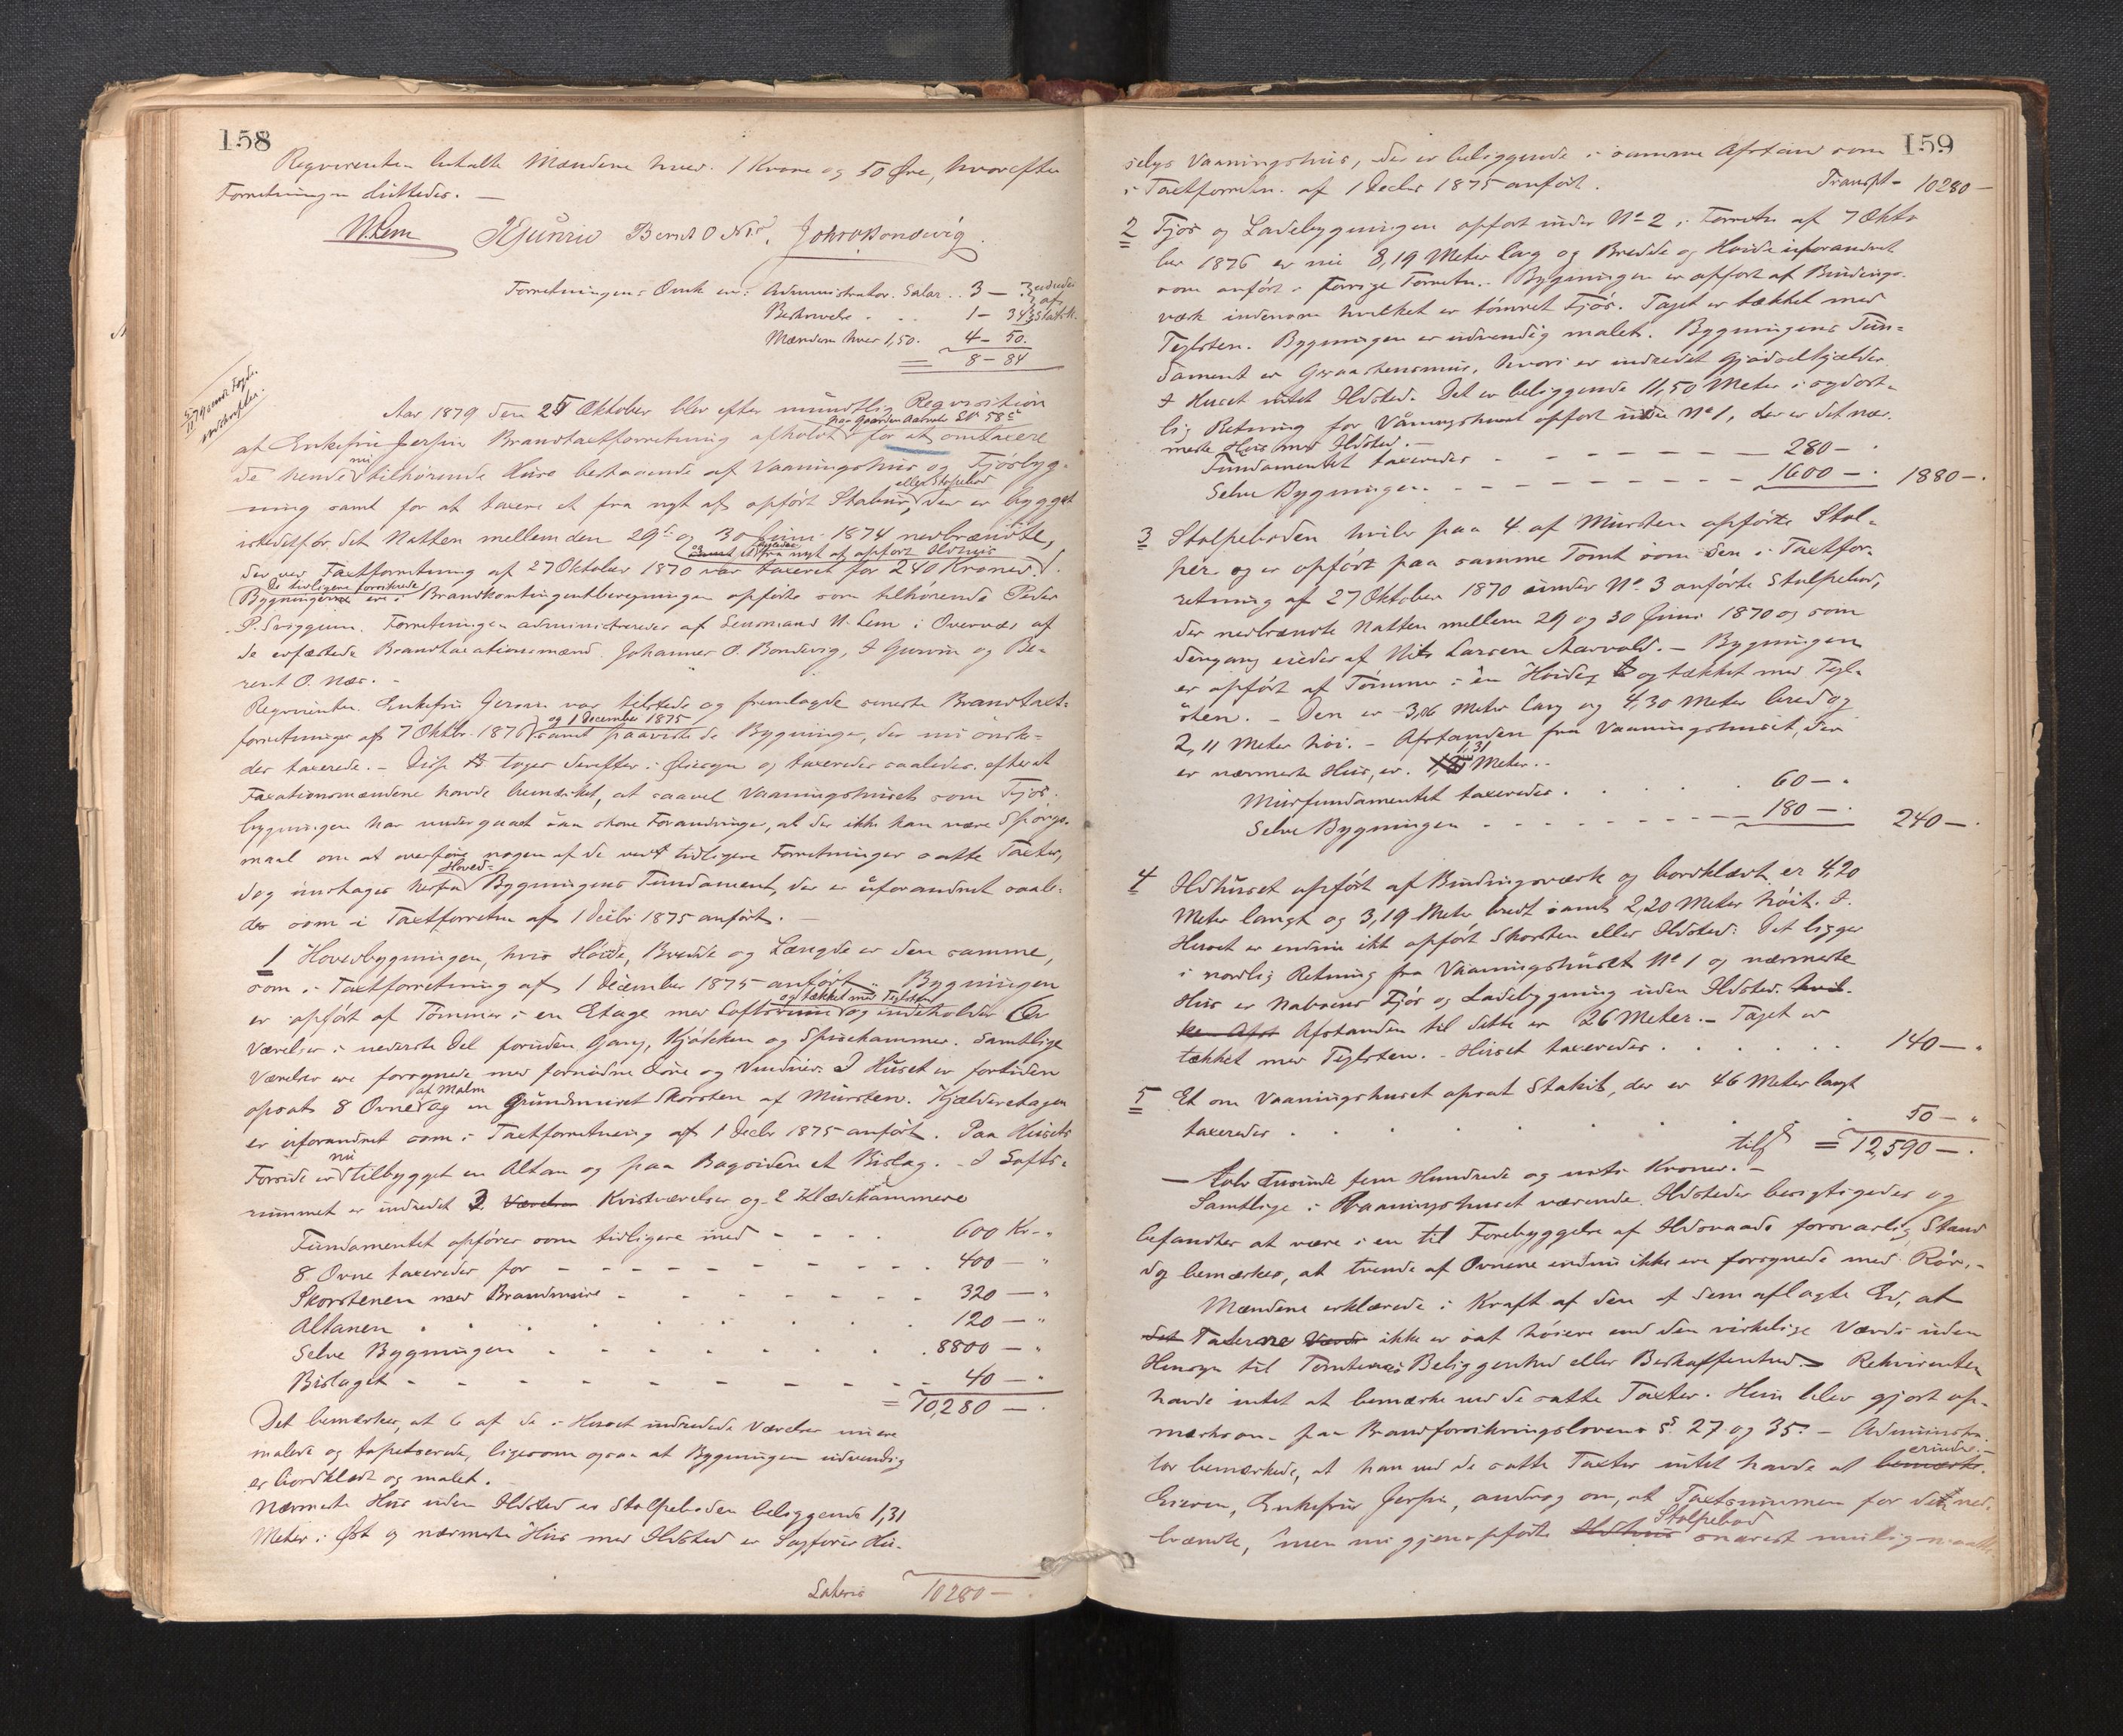 158
Reqvirenten betalte Mændene hver 1 Krone og 50 Øre, hvorefter
Forretningen sluttedes. —
N. Lem Bernt O Johs O Bondevig.
Forretningens Omk. er: Administrator. Salær . . 3 —
Beskrivelse . . . 1 – 34
Mændene hver 1,50. 4 – 50.
8 – 84
Aar 1879 den 25 Oktober blev efter mundtlig Reqvisition
paa Gaarden Aarvold
af Enkefru Jersin Brandtaxtforretning afholdt for at omtaxere
de hende nu tilhørende Huse bestaaende af Vaaningshus og Fjøsbyg-
eller Stolpebod
ning samt for at taxere et fra nyt af opført Stabur, der er bygget
istedetfor det Natten mellem den 29de og 30 Juni 1874 nedbrændte,
og ligeledes et fra nyt af opført Ildhus
der ved Taxtforretning af 27 Oktober 1870 var taxeret for 240 Kroner.
De tidligere forsikrede
Bygninger ere i Brandkontingentberegningen opførte som tilhørende Peder
P. Sviggum. Forretningen administreredes af Lensmand N. Lem i Overvær af
de edfæstede Brandtaxationsmænd Johannes O. Bondevig, I Gunvin og Be-
rent O. Næs. –
Reqvirenten Enkefru Jersin var tilstede og fremlagde seneste Brandtaxt-
og 1 December 1875
forretninger af 7 Oktbr. 1876 samt paaviste de Bygninger, der nu ønsk-
des taxerede. – Disse toges derefter i Øiesyn og taxeredes saaledes, efterat
Taxationsmændene havde bemærket, at saavel Vaaningshuset som Fjøs-
bygningen har undergaaet saa store Forandringer, at der ikke kan være Spørgs-
maal om at overføre nogen af de ved tidligere Forretninger satte Taxter,
Hoved-
dog undtages herfra Bygningens Fundament, der er uforandret saale-
des som i Taxtforretn. af 1 Decbr 1875 anført. —
1 Hovedbygningen, hvis Høide, Bredde og Længde er den samme,
som i Taxtforretning af 1 December 1875 anført. Bygningen
og tækket med Teglsten
er opført af Tømmer i en Etage med Loftsrum og indeholder
Værelser i nederste Del foruden Gang, Kjøkken og Spisekammer. Samtlige
Værelser ere forsynede med fornødne Døre og Vinduer. I Huset er fortiden
af Malm
opsat 8 Ovne og en grundmuret Skorsten af Mursten. Kjælderetagen
er uforandret som i Taxtforretning af 1 Decbr 1875 anført. Paa Husets
Forside er nu tilbygget en Altan og paa Bagsiden et Bislag. – I Lofts-
rummet er indredet 3 Værelser Kvistværelser og 2 Klædekammere
Fundamentet opføres som tidligere med - - - - 600 Kr - „
8 Ovne taxeredes for - - - - - - - - - 400 — „
Skorstenen med Brandmure - - - - - - - 320 — „
Altanen . . . . . . . . . 120 — „
Selve Bygningen . . . . . . . 8800 — „
Bislaget - - - - - - - - - - 40 — „
= 10,280 —.
Det bemærkes, at 6 af de i Huset indredede Værelser nu ere
malede og tapetserede, ligesom ogsaa at Bygningen udvendig
er bordklædt og malet.
Nærmeste Hus uden Ildsted er Stolpeboden beliggende 1,31
Meter i Øst og nærmeste Hus med Ildsted er Sagfører Hu-
Lateris 10280 —
159
selys Vaaningshus, der er beliggende i samme Afstand som
i Taxtforretn. af 1 Decbr 1875 anført. Transpt – 10280 —
2 Fjøs og Ladebygningen opført under No 2 i Forretn af 7 Okto
ber 1876 er nu 8,19 Meter lang og Bredde og Høide uforandret
som anført i forrige Forretn. – Bygningen er opført af Bindings-
værk indenom hvilket er tømret Fjøs. Taget er tækket med
Teglsten. Bygningen er udvendig malet. Bygningens Fun-
dament er Graastensmur, hvori er indredet Gjødselkjælder
I Huset intet Ildsted. Det er beliggende 11,50 Meter i sydøst-
lig Retning for Våningshuset opført under No 1, der er det nær-
meste Hus med Ildsted. —
Fundamentet taxeredes - - - - - - 280 — .
Selve Bygningen - - - - - - - 1600 — . 1880 — .
3 Stolpeboden hviler paa 4 af Mursten opførte Stol-
per og er opført paa samme Tomt som den i Taxtfor-
retning af 27 Oktober 1870 under No. 3 anførte Stolpebod,
der nedbrændte Natten mellem 29 og 30 Juni 1870 og som
dengang eiedes af Nils Larsen Aarvold. – Bygningen
er opført af Tømmer i en Høide, og tækket med Tegl-
sten. – Den er 3,06 Meter lang og 4,30 Meter bred og
2,11 Meter høi. – Afstanden fra Vaaningshuset, der
1,31
er nærmeste Hus, er Meter. –
Murfundamentet taxeredes . . . . . 60 — „
Selve Bygningen - - - - - - - - 180 — . 240 — .
4 Ildhuset opført af Bindingsværk og bordklædt er 4,20
Meter langt og 3,19 Meter bredt samt 2,20 Meter høit. I
Huset er endnu ikke opført Skorsten eller Ildsted. Det ligger
i nordlig Retning fra Vaaningshuset No 1 og nærmeste
Hus er Naboens Fjøs og Ladebygning uden Ildsted. hvil-
ke Afst Afstanden til dette er 26 Meter. – Taget er
tækket med Teglsten. – Huset taxeredes . . . . . 140 — „
5 Et om Vaaningshuset opsat Stakit, der er 46 Meter langt
taxeredes . . . . . . . . 50 — „
tils = 12,590 — .
— tolv Tusinde fem Hundrede og niti Kroner. —
Samtlige i Vaaningshuset værende Ildsteder besigtigedes og
befandtes at være i en til Forebyggelse af Ildsvaade forsvarlig Stand
dog bemærkes, at tvende af Ovnene endnu ikke ere forsynede med Rør. –
Mændene erklærede i Kraft af den af dem aflagte Ed, at
det Taxterne Værdi ikke er sat høiere end den virkelige Værdi uden
Hensyn til Tomternes Beliggenhed eller Beskaffenhed. – Rekvirenten
havde intet at bemærke ved de satte Taxter. Hun blev gjort op-
mærksom paa Brandforsikringslovens §§ 27 og 35. – Administra-
erindre. –
tor bemærkede, at han ved de satte Taxter intet havde at bemærke.
Eieren, Enkefru Jersin, androg om, at Taxtsummen for det ned-
Stolpebod
brændte, men nu gjenopførte Ildhus snarest mulig maatte